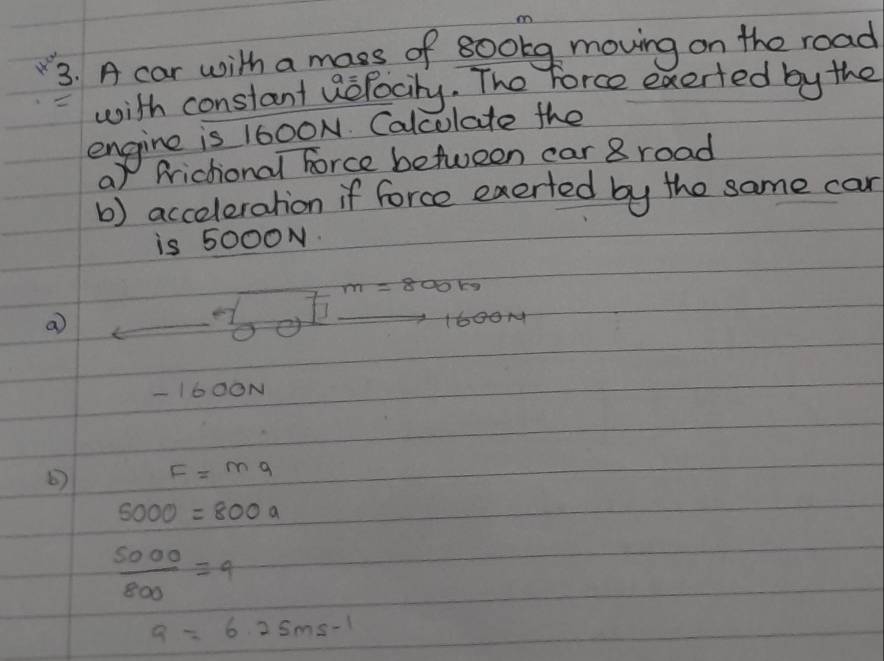 m
3. A car with a mass of 800kg moving on the road
a=
with constant velocity. The force exerted by the
engine is 1600N. Calculate the
a) frictional force between car & road
b) acceleration if force exerted by the same car
is 5000N.
m = 800kg
a) 1600N
-1600N
b) F = ma
5000 = 800a
5000
800 = a
a = 6.25ms-1